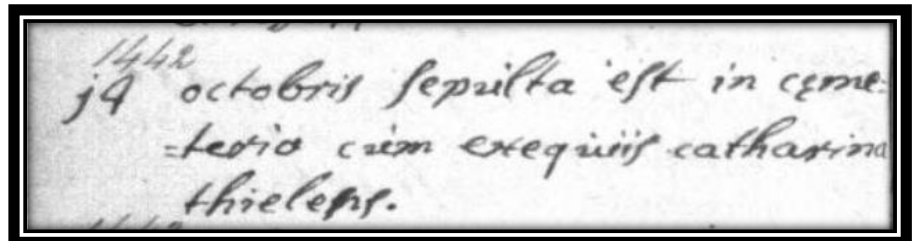 1442
j9 octobris sepulta est in cęme:
=terio cum exequiis catharina
thielens.